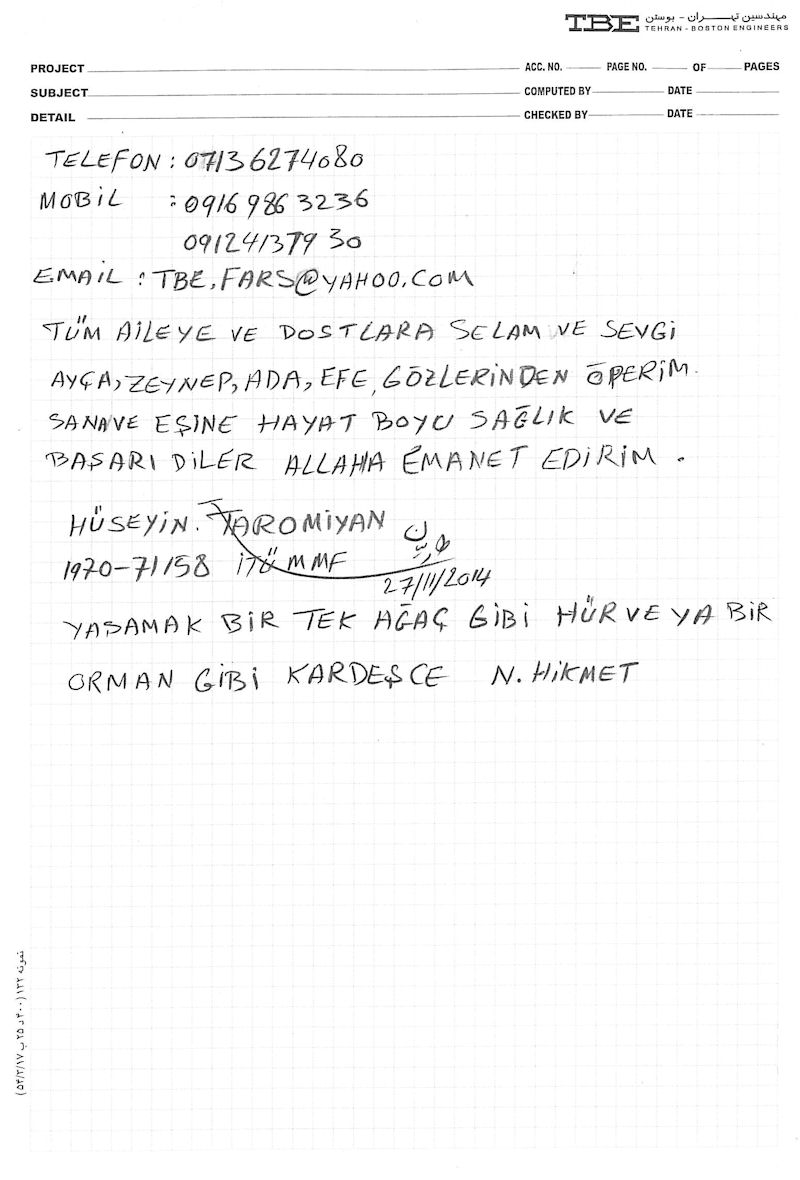 مهندسین تهران - بوستن
TBE TEHRAN - BOSTON ENGINEERS
PROJECT ACC. NO. PAGE NO. OF PAGES
SUBJECT COMPUTED BY DATE
DETAIL CHECKED BY DATE
TELEFON : 07136274080
MOBİL : 0916 986 3236
091241379 30
EMAİL : TBE.FARS@YAHOO.COM
TÜM AİLEYE VE DOSTLARA SELAM VE SEVGİ
AYÇA, ZEYNEP, ADA, EFE, GÖZLERİNDEN ÖPERİM.
SANA VE EŞİNE HAYAT BOYU SAĞLIK VE
BAŞARI DİLER ALLAHA EMANET EDİRİM .
HÜSEYİN. TAROMİYAN
1970-71/58 İTÜ MMF
27/11/2014
YAŞAMAK BİR TEK AĞAÇ GİBİ HÜR VE YA BİR
ORMAN GİBİ KARDEŞCE N. HİKMET